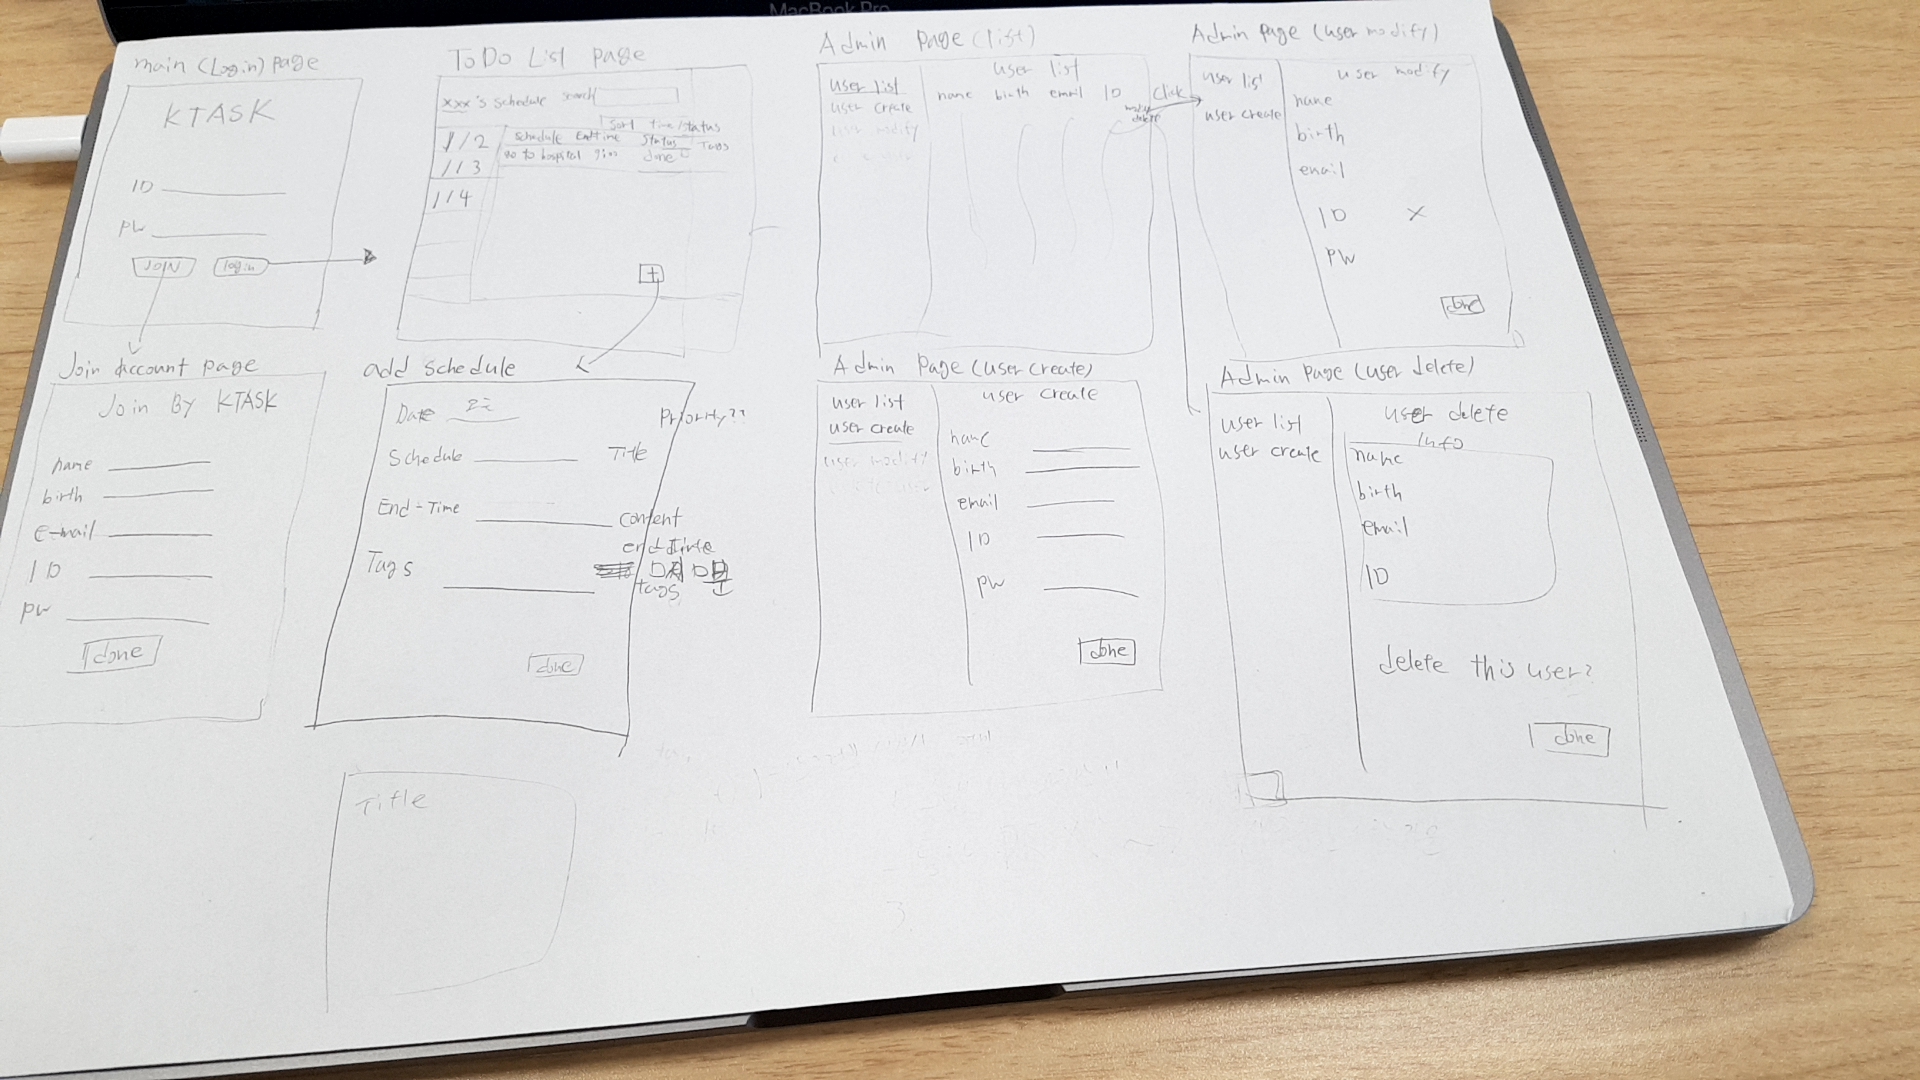 MacBook Pro
main (Login) page
KTASK
ID
PW
JOIN login
ToDo List page
xxx's schedule search
sort time/status
1/2
schedule endtime status Tags
go to hospital done
1/3
1/4
+
Admin page (list)
user list
user create
user modify
user list
name birth email ID
click
Admin page (user modify)
user list
user create
user modify
name
birth
email
ID X
PW
done
Join account page
Join By KTASK
name
birth
e-mail
ID
PW
done
add schedule
Date
Priority??
Schedule Title
End-Time
content
end time
Tags
tags
done
Admin page (user create)
user list
user create
user modify
user create
name
birth
email
ID
PW
done
Admin page (user delete)
user list
user create
user delete
info
name
birth
email
ID
delete this user?
done
Title